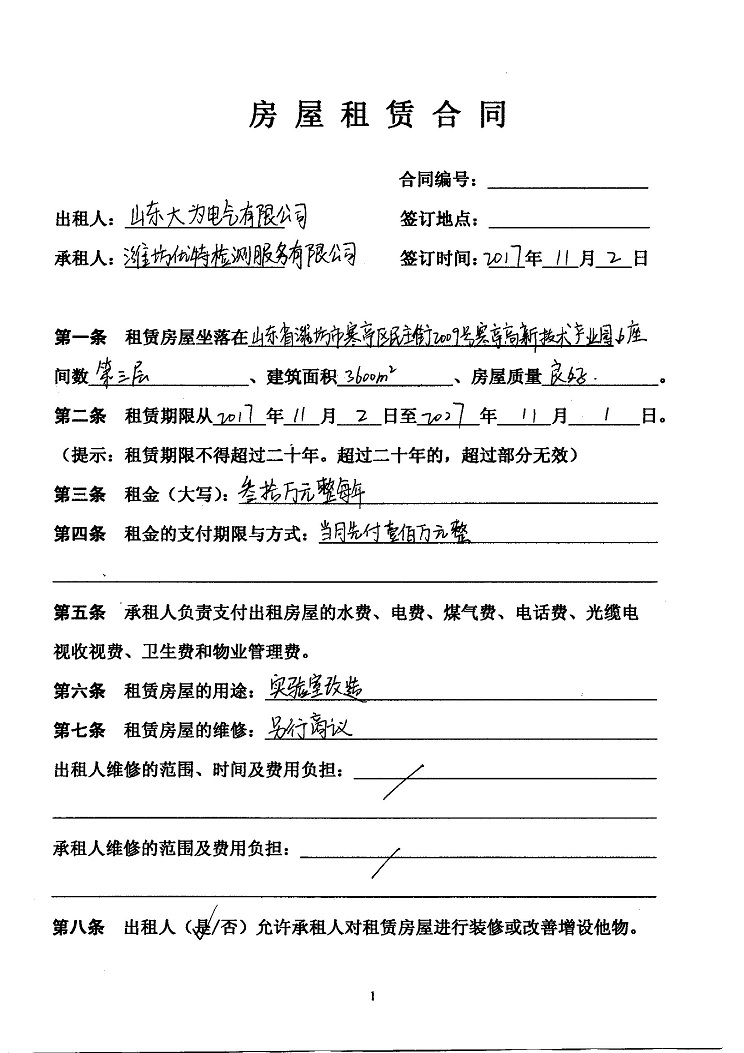 房屋租赁合同
合同编号：
出租人：山东大为电气有限公司 签订地点：
承租人：潍坊优特检测服务有限公司 签订时间：2017年 11 月 2 日
第一条 租赁房屋坐落在山东省潍坊市寒亭区民主街2009号寒亭高新技术产业园6座
间数 第三层 、建筑面积 3600m² 、房屋质量 良好. 。
第二条 租赁期限从 2017 年 11 月 2 日至 2027 年 11 月 1 日。
（提示：租赁期限不得超过二十年。超过二十年的，超过部分无效）
第三条 租金（大写）：叁拾万元整每年
第四条 租金的支付期限与方式：当月先付壹佰万元整
第五条 承租人负责支付出租房屋的水费、电费、煤气费、电话费、光缆电
视收视费、卫生费和物业管理费。
第六条 租赁房屋的用途：实验室改造
第七条 租赁房屋的维修：另行商议
出租人维修的范围、时间及费用负担： /
承租人维修的范围及费用负担： /
第八条 出租人（是√/否）允许承租人对租赁房屋进行装修或改善增设他物。
1